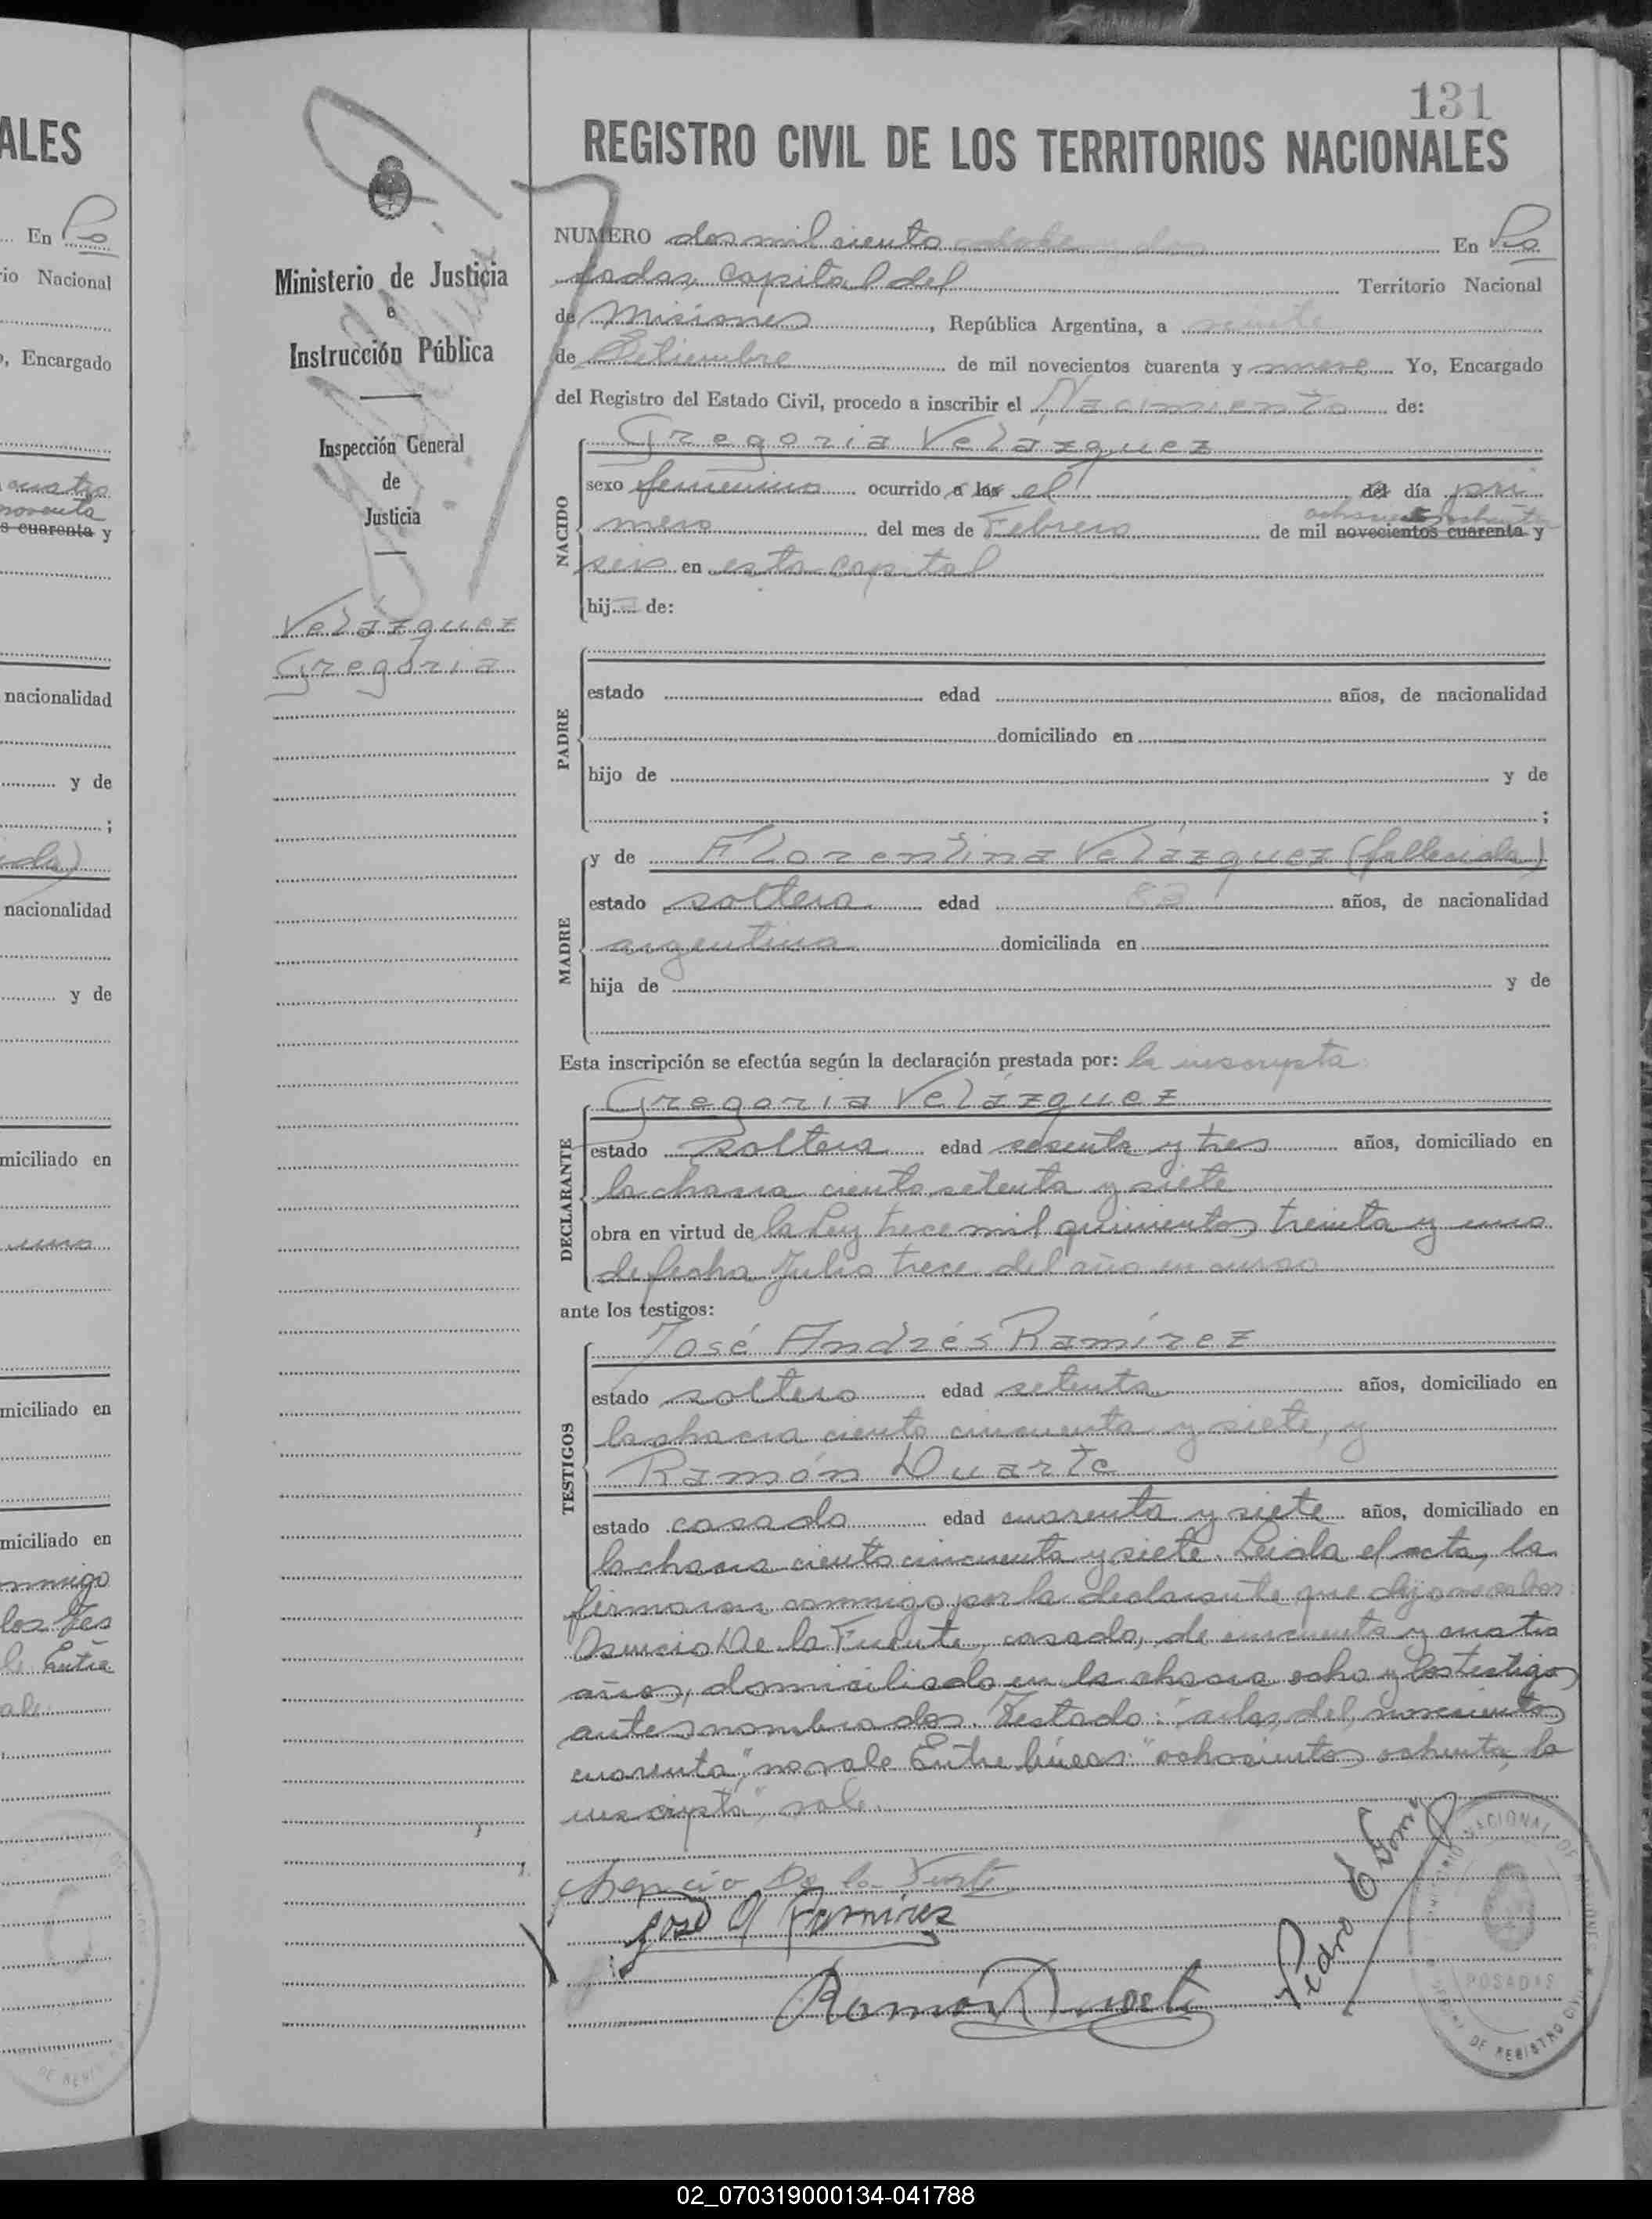 131
REGISTRO CIVIL DE LOS TERRITORIOS NACIONALES
NUMERO dos mil ciento En Po
sadas, capital del Territorio Nacional
de Misiones, República Argentina, a
de Setiembre de mil novecientos cuarenta y nueve Yo, Encargado
del Registro del Estado Civil, procedo a inscribir el Nacimiento de:
Gregoria Velázquez
NACIDO
sexo femenino ocurrido a las el del día pri
ochocientos ochenta
mero del mes de Febrero de mil novecientos cuarenta y
seis en esta capital
hija de:
PADRE
estado edad años, de nacionalidad
domiciliado en
hijo de y de
;
MADRE
y de Florentina Velázquez (fallecida)
estado soltera edad años, de nacionalidad
argentina domiciliada en
hija de y de
Esta inscripción se efectúa según la declaración prestada por: la inscripta
Gregoria Velázquez
DECLARANTE
estado soltera edad sesenta y tres años, domiciliado en
la chacra ciento setenta y siete
obra en virtud de la Ley trece mil quinientos treinta y uno
de fecha Julio trece del año en curso
ante los testigos:
José Andrés Ramírez
TESTIGOS
estado soltero edad setenta años, domiciliado en
la chacra ciento cincuenta y siete, y
Ramón Duarte
estado casado edad cuarenta y siete años, domiciliado en
la chacra ciento cincuenta y siete. Leída el acta, la
firmaron conmigo por la declarante que dijo no saber
Asencio De la Fuente, casado, de cincuenta y cuatro
años, domiciliado en la chacra ocho y los testigos
antes nombrados. Testado: "a las, del, novecientos
cuarenta", no vale. Entre líneas: "ochocientos ochenta, la
inscripta", vale.
Asencio De la Fuente
José A Ramirez
Ramón Duarte
Pedro E
POSADAS
DE REGISTRO CIVIL
Ministerio de Justicia
e
Instrucción Pública
Inspección General
de
Justicia
Velázquez
Gregoria
ALES
En Po
rio Nacional
, Encargado
cuatro
noventa
s cuarenta y
nacionalidad
y de
;
nacionalidad
y de
miciliado en
uno
miciliado en
miciliado en
conmigo
los Tes
Entre
02_070319000134-041788